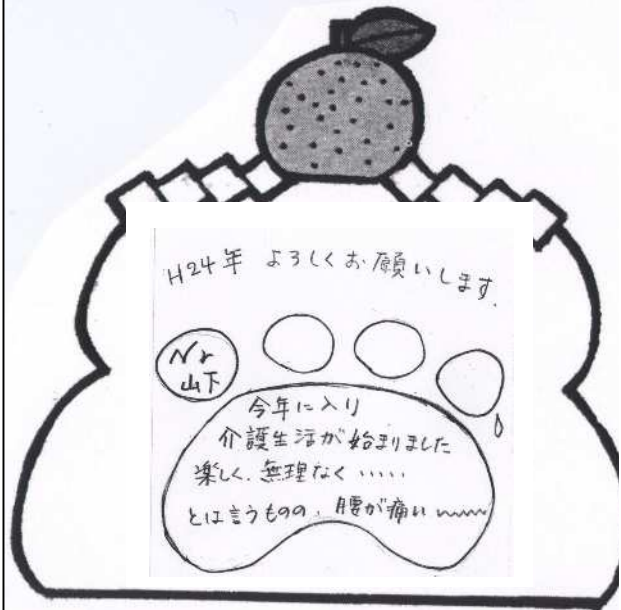 H24年 よろしくお願いします.
Nr
山下
今年に入り
介護生活が始まりました
楽しく、無理なく ・・・・・
とは言うものの、腰が痛い〰〰